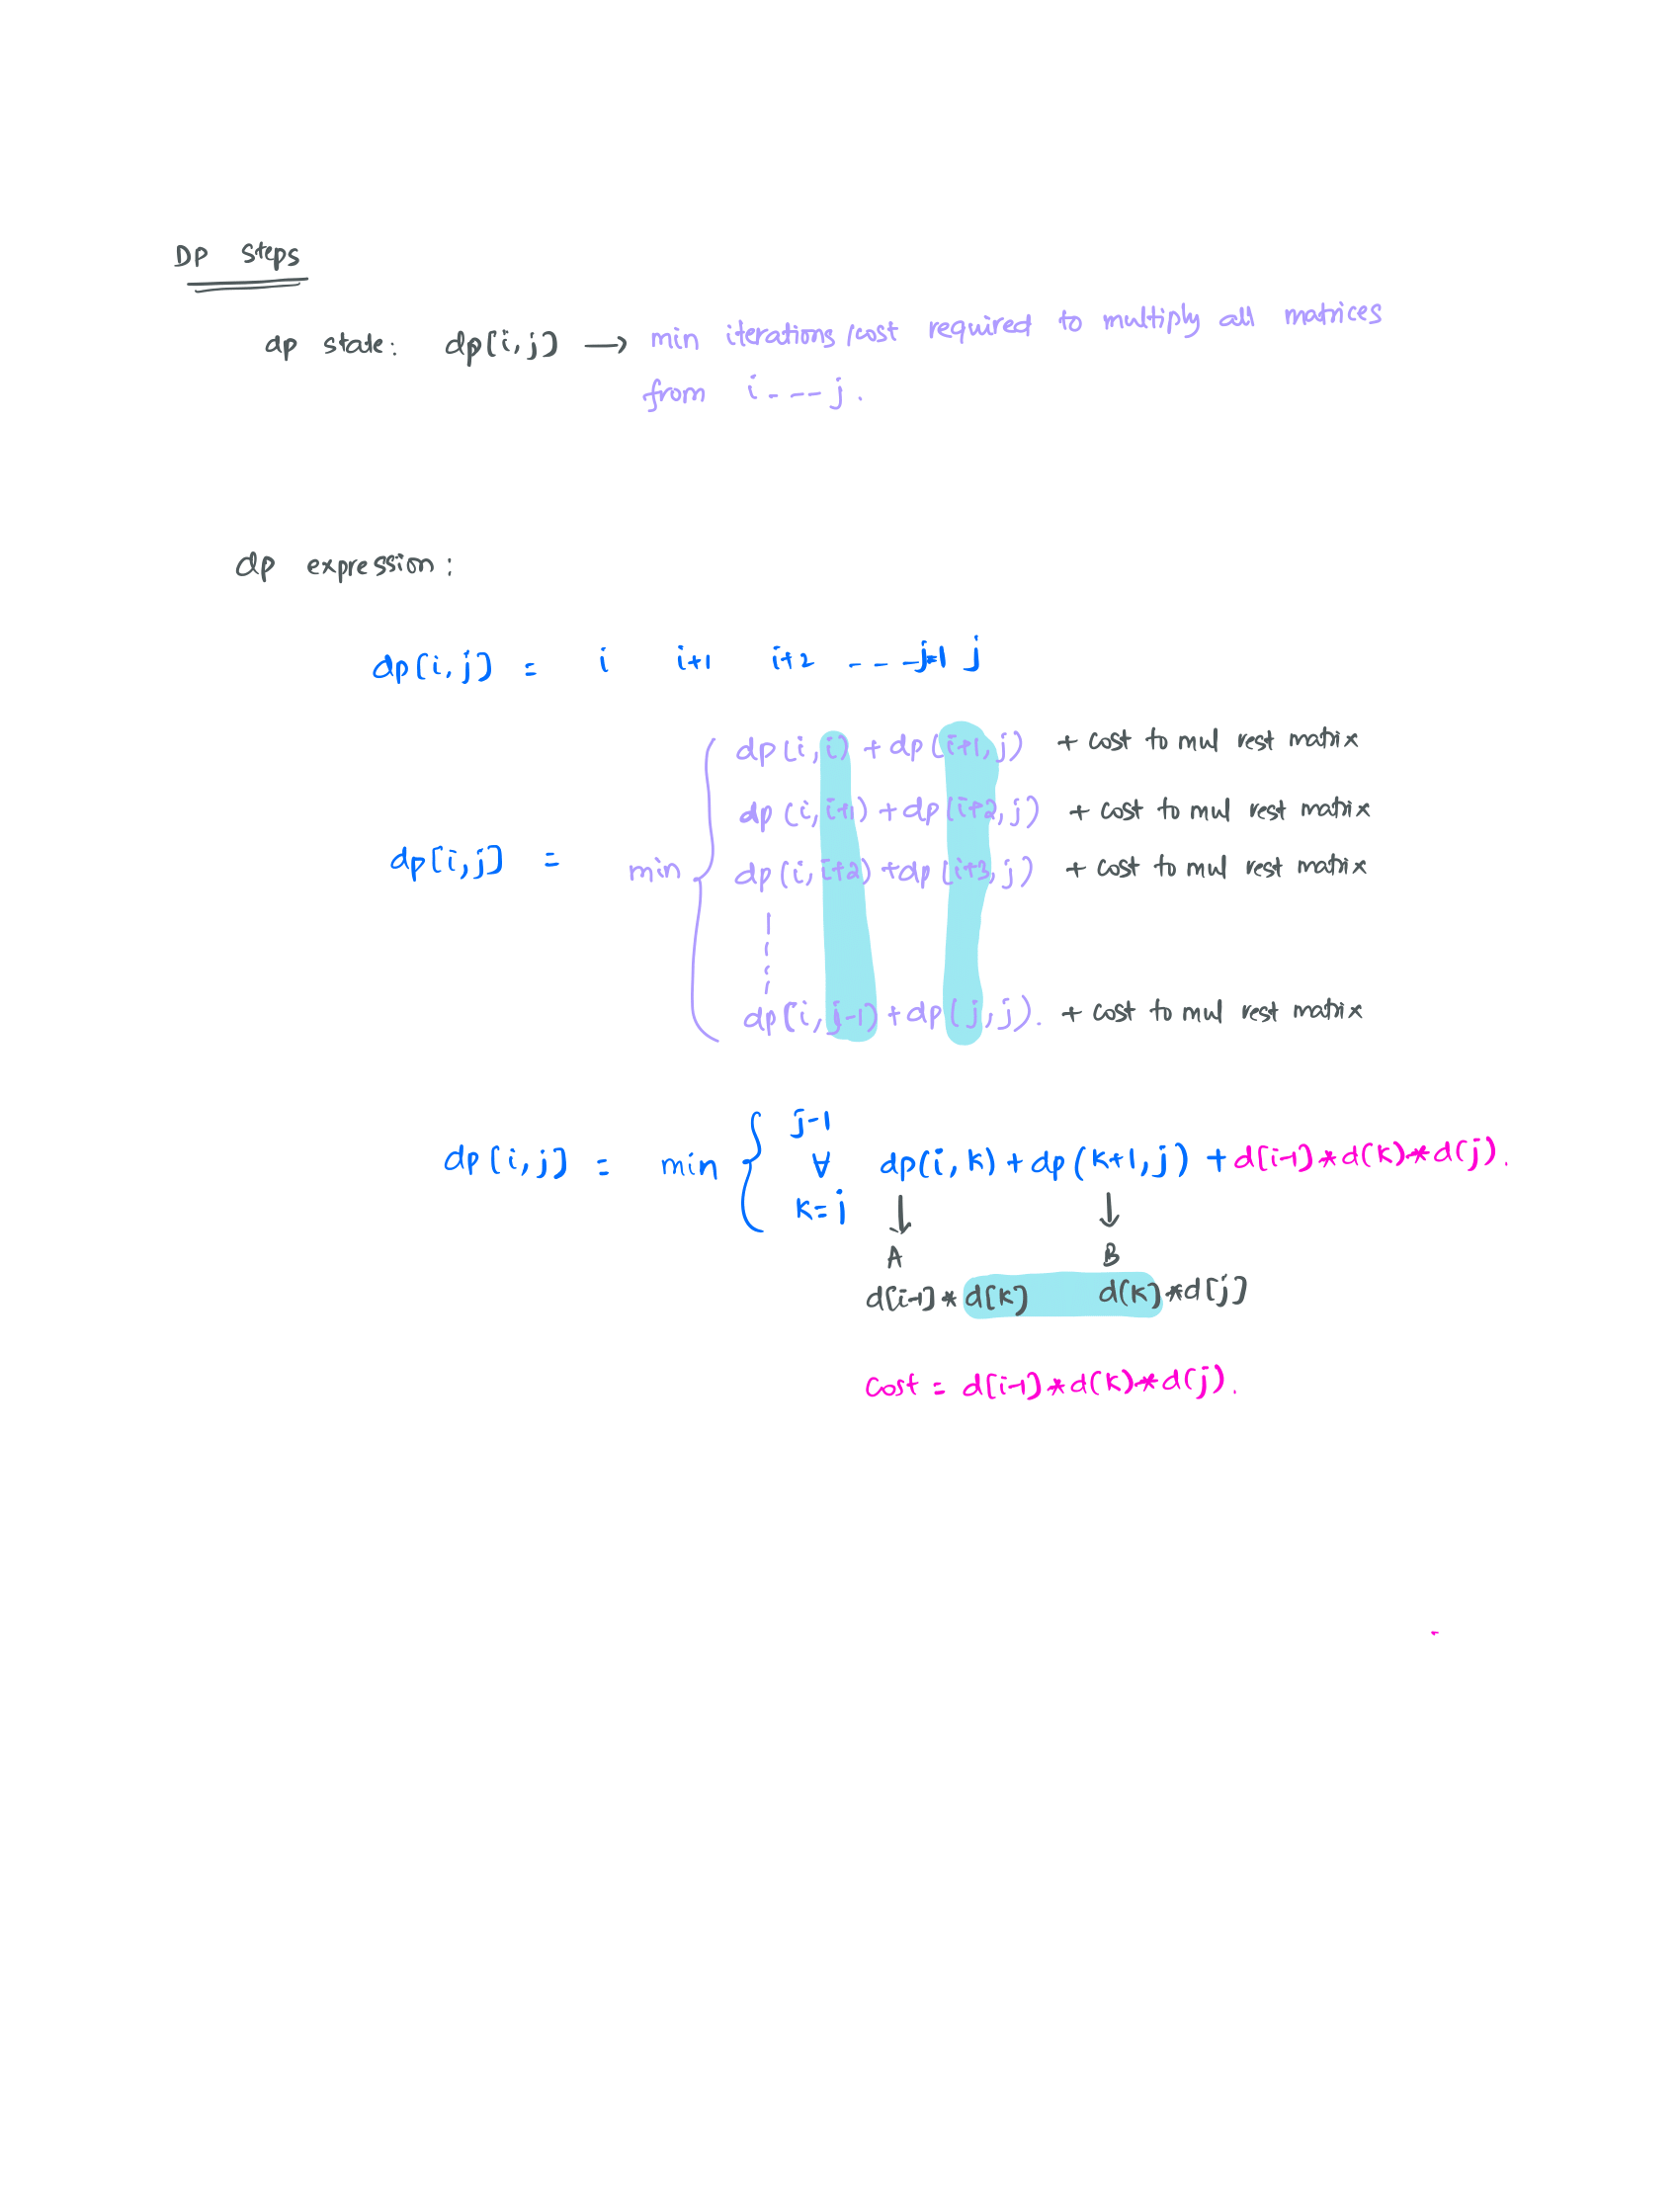 DP steps
dp state: dp[i,j] → min iterations/cost required to multiply all matrices
from i - - - - j.
dp expression:
dp[i,j] = i i+1 i+2 - - - j-1 j
dp(i,i) + dp(i+1,j) + cost to mul rest matrix
dp(i,i+1) + dp(i+2,j) + cost to mul rest matrix
dp[i,j] = min { dp(i,i+2) + dp(i+3,j) + cost to mul rest matrix
dp(i,j-1) + dp(j,j). + cost to mul rest matrix
j-1
dp[i,j] = min { ∀ dp(i,k) + dp(k+1,j) + d[i-1]*d(k)*d(j).
k=i
↓ ↓
A B
d[i-1]*d[k] d(k)*d[j]
cost = d[i-1]*d(k)*d(j).